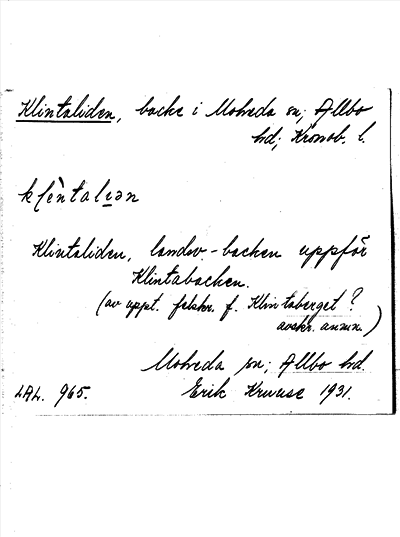 Klintaliden, backe i Moheda sn; Allbo
hd; Kronob. l.
klèntaliən
Klintaliden, landsv-backen uppför
Klintabacken.
(av uppt. felskr. f. Klintaberget?
avskr. anm.)
Moheda sn; Allbo hd.
LAL. 965. Erik Kruuse 1931.